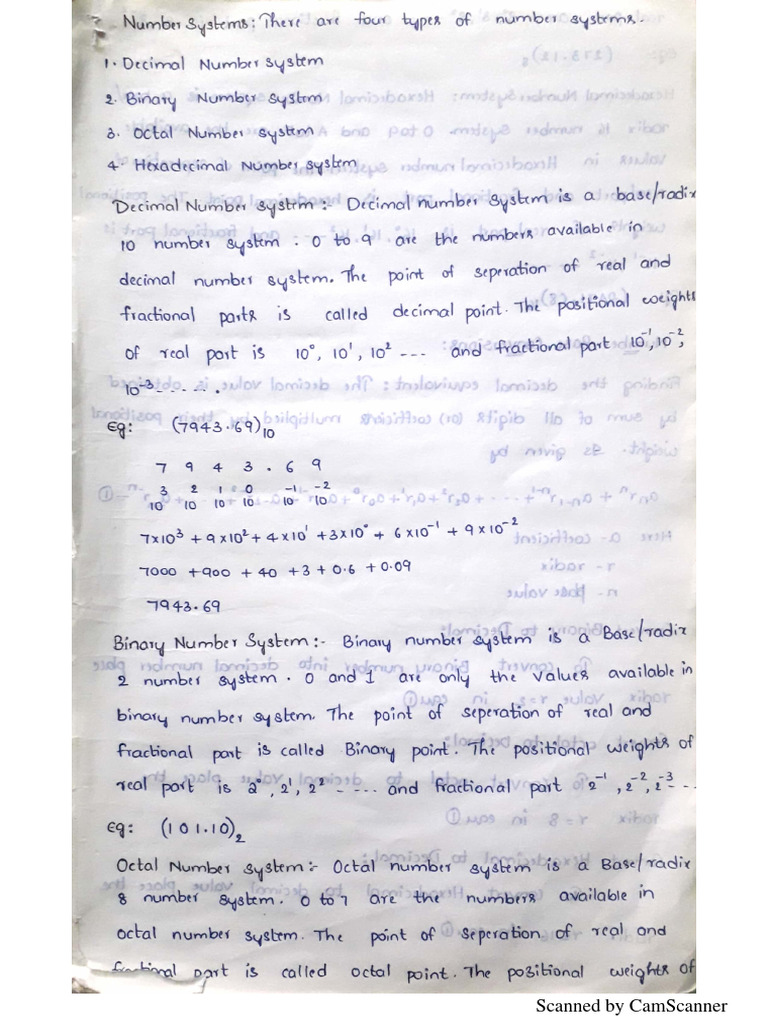 Number Systems: There are four types of number systems.
1. Decimal Number system
2. Binary Number system
3. Octal Number system
4. Hexadecimal Number system
Decimal Number system :- Decimal number system is a base/radix
10 number system : 0 to 9 are the numbers available in
decimal number system. The point of seperation of real and
fractional parts is called decimal point. The positional weights
of real part is 10⁰, 10¹, 10² --- and fractional part 10⁻¹, 10⁻²,
10⁻³ ......
Eg: (7943.69)₁₀
7 9 4 3 . 6 9
10³ 10² 10¹ 10⁰ 10⁻¹ 10⁻²
7×10³ + 9×10² + 4×10¹ + 3×10⁰ + 6×10⁻¹ + 9×10⁻²
7000 + 900 + 40 + 3 + 0.6 + 0.09
7943.69
Binary Number System :- Binary number system is a Base/radix
2 number system. 0 and 1 are only the values available in
binary number system. The point of seperation of real and
fractional part is called Binary point. The positional weights of
real part is 2⁰, 2¹, 2² ----- and fractional part 2⁻¹, 2⁻², 2⁻³ ---
Eg: (101.10)₂
Octal Number system :- Octal number system is a Base/radix
8 number system. 0 to 7 are the numbers available in
octal number system. The point of seperation of real and
part is called octal point. The positional weights of
Scanned by CamScanner